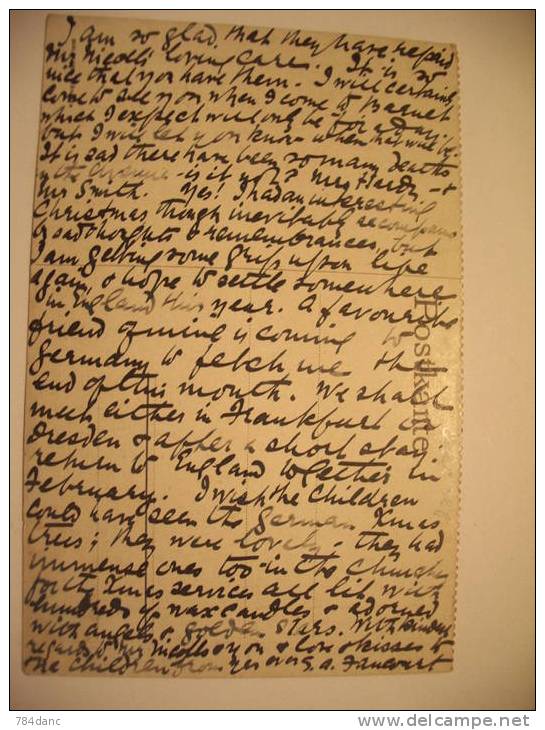 I am so glad that they have repaid
Mr Nicolls' loving care. It is so
nice that you have them. I will certainly
come to see you when I come to Barnet
which I expect will only be for a day.
but I will let you know when that will be.
It is sad there have been so many deaths
in the Avenue - is it not? Mrs Hardy - &
Mrs Smith. Yes! I had an interesting
Christmas though inevitably accompanied
by sad thoughts & remembrances, but
I am getting some grip upon life
again, & hope to settle somewhere
in England this year. A favourite
friend of mine is coming to
Germany to fetch me the
end of this month. We shall
meet either in Frankfurt or
Dresden & after a short stay
return to England together in
February. I wish the children
could have seen the German Xmas
trees; they were lovely - they had
immense ones too in the Church
for the Xmas services all lit with
hundreds of wax candles & adorned
with angels & golden stars. With kindest
regards to Mr Nicolls & you & love & kisses to
the children from yrs ever G. A. Fancourt
Postkarte
784danc
delcampe.net